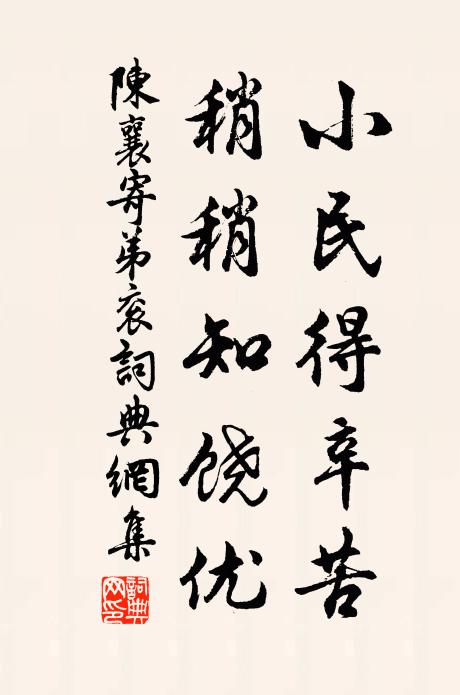 小民得辛苦
稍稍知饶优
陳襄寄弟衮詞典網集
詞典网印